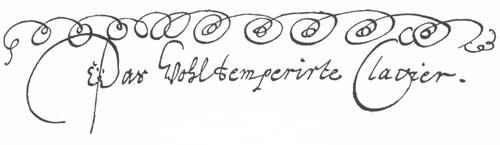 Das Wohltemperirte Clavier.